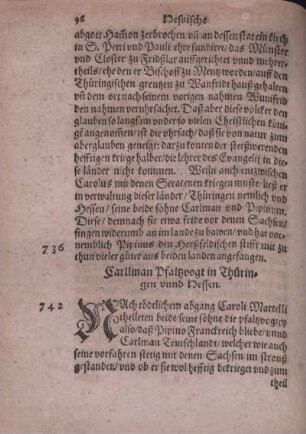 96 Hessische
abgott Ham̃on zerbrochen vñ an dessen stat ein kirch
in S. Petri vnd Pauli ehre fundirt / das Münster
vnd Closter zu Fridßlar auffgerichtet vnnd mehrer-
theils / ehe den er Bischoff zu Mentz worden / auff den
Thüringischen grentzen zu Wanfrid hauß gehalten
vñ dem ort nach seinem vorigen nahmen Winifrid
den nahmen veruhrsachet. Daß aber diese völcker den
glauben so langsam vnder so vielen Christlichen köni-
ge angenom̃en / ist die vhrsach / daß sie von natur zum
aberglauben geneigt: dar zu konten der stettswerenden
hefftigen kriege halber / die lehrer des Evangelij in die-
se länder nicht kommen. Weiln auch entzwischen
Carolus mit denen Saracenen kriegen muste / ließ er
in verwaltung dieser länder / Thüringen nemlich vnd
Hessen / seine beide söhne Carlman vnd Pipinum.
Diese / demnach sie etwa fride vor denen Sachsen /
fingen widerumb an im lande zu bawen / vnd hat vor-
736 nemblich Pipinus den Herßfeldischen stifft mit zu
thun vieler güter aus beiden landen angefangen.
Carllman Pfaltzvogt in Thürin-
gen vnnd Hessen.
742 NAch tödtlichem abgang Caroli Martelli
theileten beide seine söhne die pfaltzvogtey
also / daß Pipino Franckreich bliebe / vnnd
Carlman Teutschlandt / welcher wie auch
seine vorfahren stetig mit denen Sachsen im strauß
gestanden / vnd ob er sie wol hefftig bekrieget vnd zum
theil